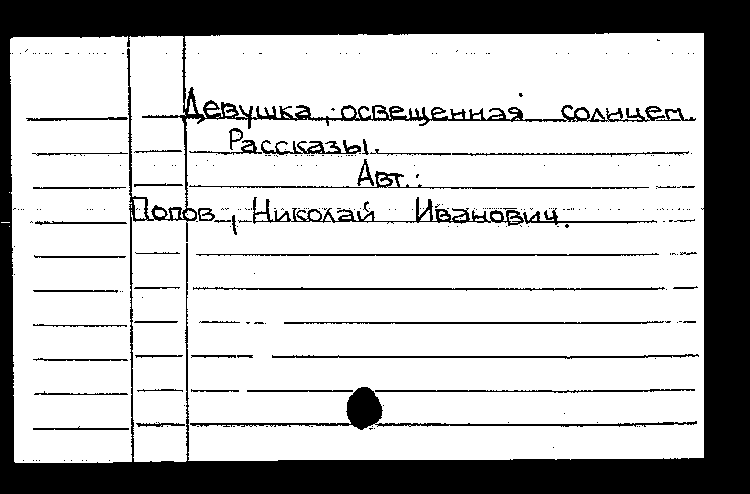 Девушка, освещенная солнцем.
Рассказы.
Авт.:
Попов, Николай Иванович.